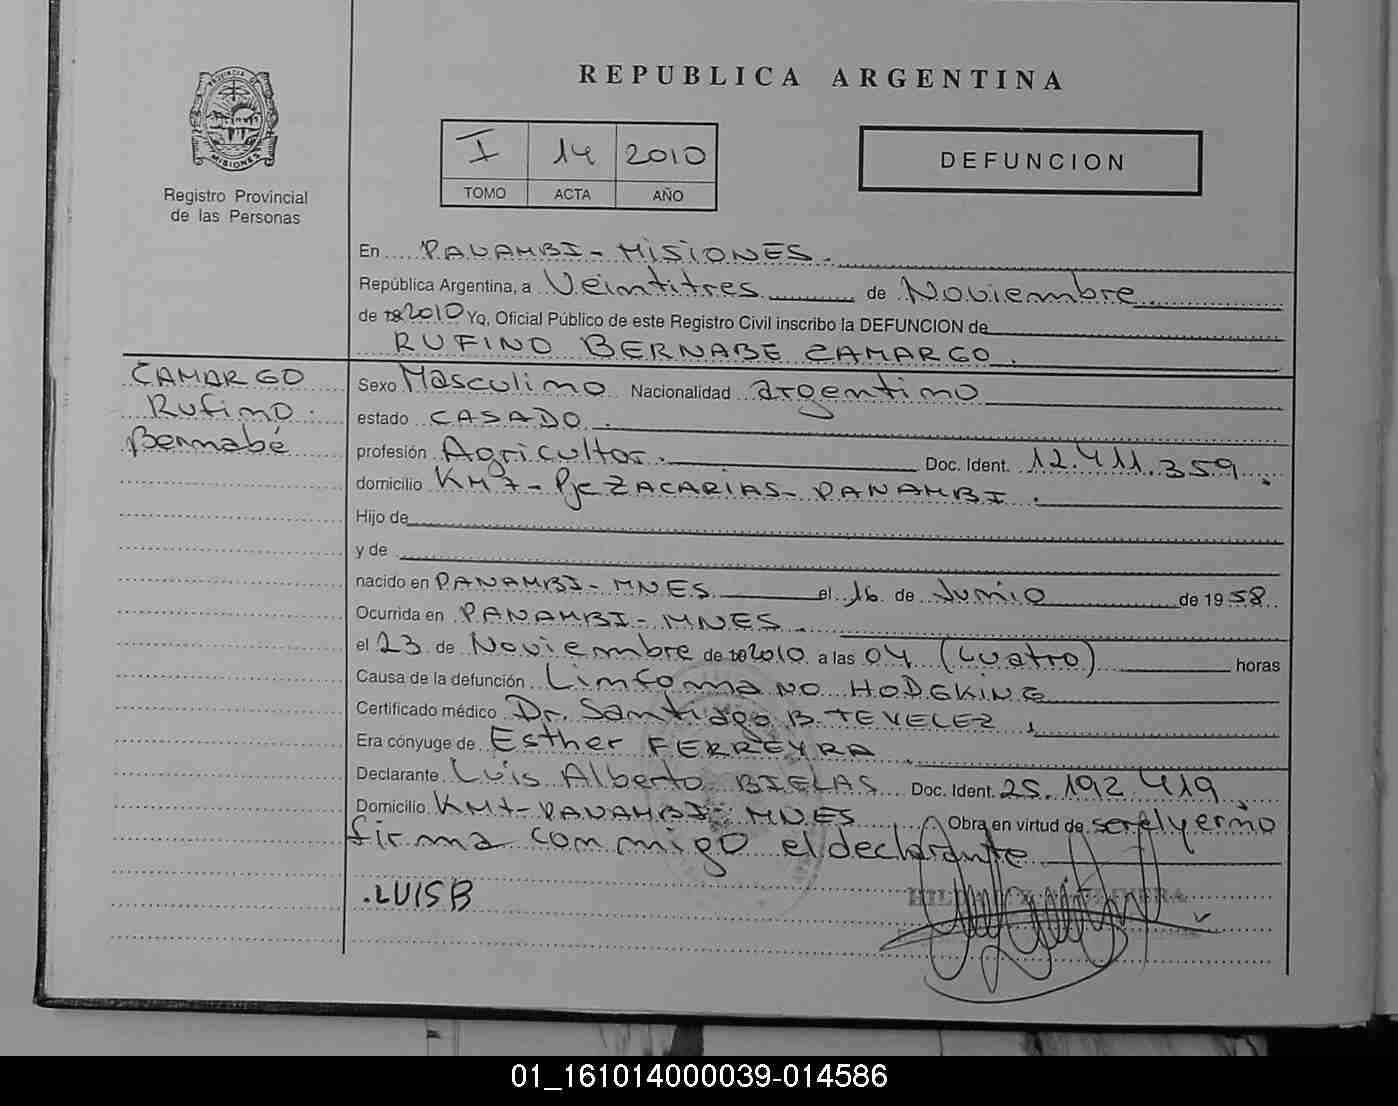 REPUBLICA ARGENTINA
PROVINCIA DE
MISIONES
Registro Provincial
de las Personas
I 14 2010
TOMO ACTA AÑO
DEFUNCION
En PANAMBI - MISIONES.
República Argentina, a Veintitres de Noviembre
de 2010 Yo, Oficial Público de este Registro Civil inscribo la DEFUNCION de
RUFINO BERNABE CAMARGO.
CAMARGO
Rufino
Bernabé
Sexo Masculino Nacionalidad argentino
estado CASADO.
profesión Agricultor. Doc. Ident. 12.411.359.
domicilio KM 7 - Pje ZACARIAS - PANAMBI.
Hijo de
y de
nacido en PANAMBI - MNES el 16 de Junio de 1958
Ocurrida en PANAMBI - MNES.
el 23 de Noviembre de 2010 a las 04 (cuatro) horas
Causa de la defunción Linfoma NO HODGKING
Certificado médico Dr. Santiago B. TEVELEZ.
Era cónyuge de Esther FERREYRA.
Declarante Luis Alberto BIELAS Doc. Ident. 25.192.419,
Domicilio KM 7 - PANAMBI - MNES Obra en virtud de ser el yerno
firma conmigo el declarante
.LUIS B
01_161014000039-014586